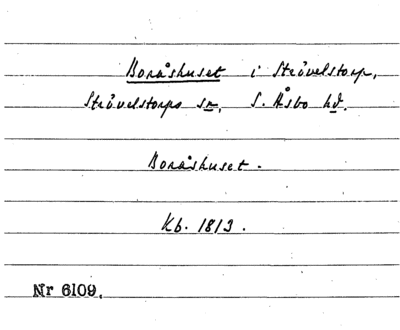 Boråshuset i Strövelstorp,
Strövelstorps sn, S. Åsbo hd.
Boråshuset.
Kb. 1813.
Nr 6109.